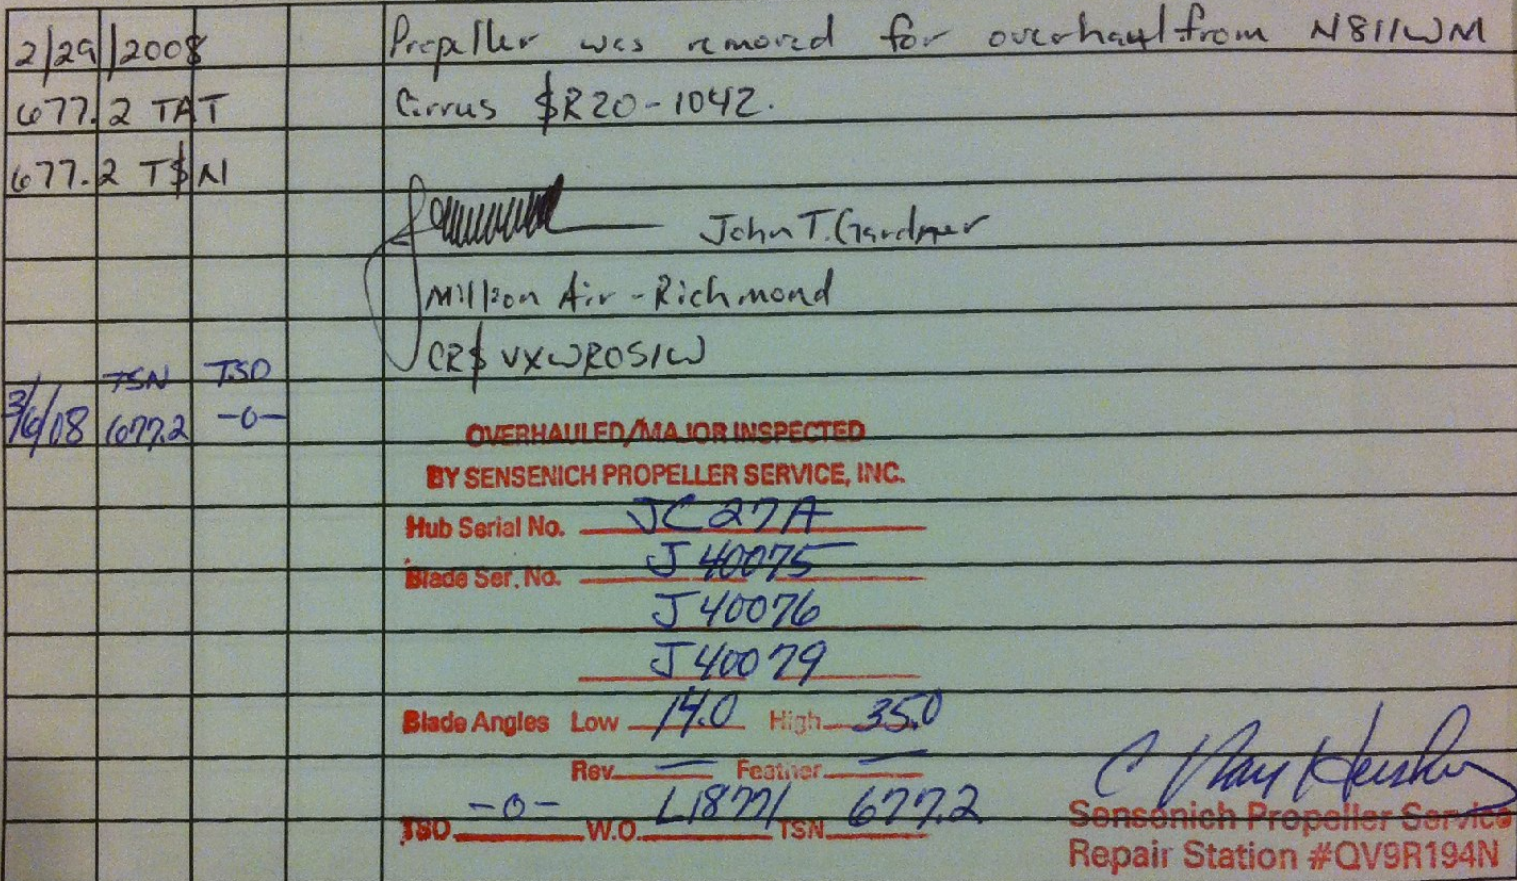 2/29/2008 Propeller was removed for overhaul from N811WM
677.2 TAT Cirrus SR20-1042.
677.2 TSN
John T. Gardner
Million Air - Richmond
CRS VXWR051W
TSN TSO
3/6/08 677.2 -0-
OVERHAULED/MAJOR INSPECTED
BY SENSENICH PROPELLER SERVICE, INC.
Hub Serial No. JC27A
Blade Ser. No. J40075
J40076
J40079
Blade Angles Low 14.0 High 35.0
Rev. — Feather —
TSO -0- W.O. L18771 TSN 677.2
Sensenich Propeller Service
Repair Station #QV9R194N